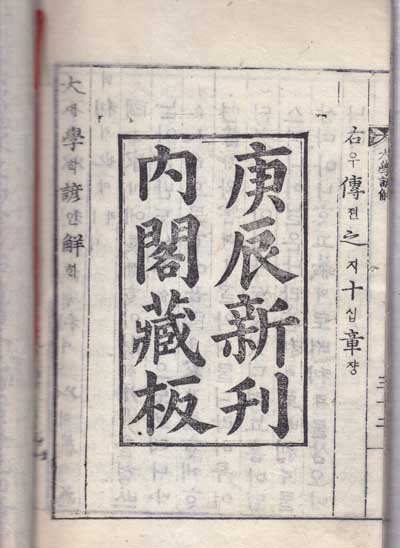 大學諺解
三十二
右우傳뎐之지十십章쟝
庚辰新刊
內閣藏板
大대學학諺언解해